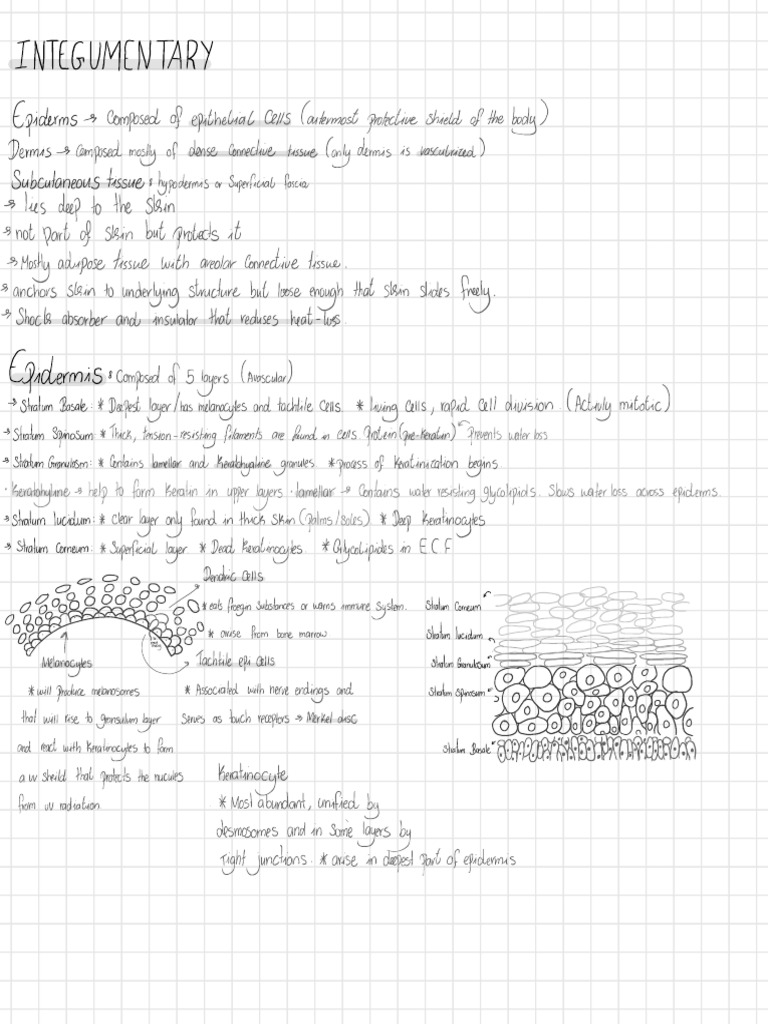 INTEGUMENTARY
Epiderms → Composed of epithelial cells (outermost protective shield of the body)
Dermis → composed mostly of dense connective tissue (only dermis is vasculrized)
Subcutaneous tissue: hypodermis or Superficial fascia
→ lies deep to the skin
→ not part of skin but protects it
→ Mostly adipose tissue with areolar connective tissue.
→ anchors skin to underlying structure but loose enough that skin slides freely.
→ Shock absorber and insulator that reduses heat-loss.
Epidermis: Composed of 5 layers (Avascular)
→ Stratum Basale: * Deepest layer/has melanocytes and tachtile cells * living cells, rapid cell division. (Activly mitotic)
→ Stratum Spinosum * Thick, tension-resisting filaments are found in cells. Protein (pre-keratin) Prevents water loss
→ Stratum Granulosm: * Contains lamellar and Keratohyaline granules. *process of Keratinization begins.
· Keratohyline → help to form Keratin in upper layers · lamellar → Contains water resisting glycolipids. Slows water loss across epiderms.
→ Stratum lucidum: * clear layer only found in thick skin (palms/soles) * Deep Keratinocytes
→ Stratum Corneum: * Superficial layer * Dead Keratinocytes * Glycolipides in ECF
Dendric cells
*eats froegin substances or warns immune system.
* arise from bone marrow
Tachtile epi cells
* Associated with nerve endings and
Serves as touch receptors → Merkel disc
Melanocytes
* will produce melanosomes
that will rise to granulum layer
and react with Keratinocytes to form
a uv sheild that protects the nucules
from uv radiation
Keratinocyte
* Most abundant, unified by
desmosomes and in some layers by
Tight junctions. * arise in deepest part of epidermis
Stratum Corneum
Stratum lucidum
Stratum Granulosum
Stratum Spinosum
Stratum Basale